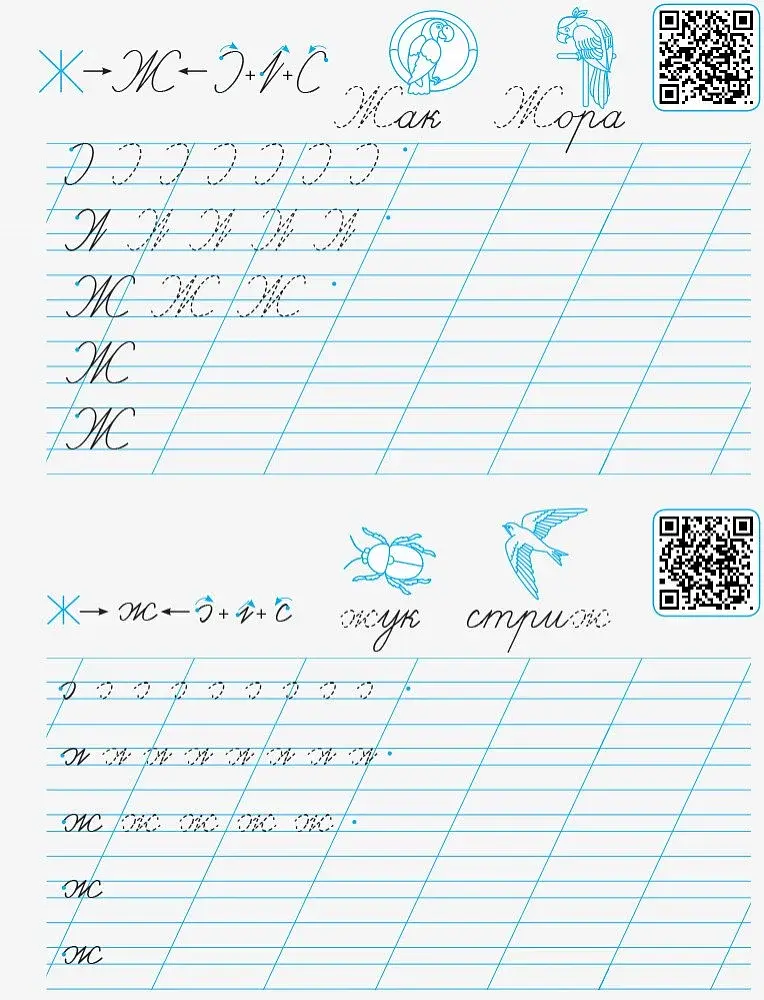 Ж → Ж ← Ɔ + И + С
Жак Жора
Ɔ Ɔ Ɔ Ɔ Ɔ Ɔ Ɔ
И И И И И
Ж Ж Ж
Ж
Ж
ж → ж ← ɔ + и + с
жук стриж
ɔ ɔ ɔ ɔ ɔ ɔ ɔ ɔ ɔ
и и и и и и и и
ж ж ж ж ж
ж
ж